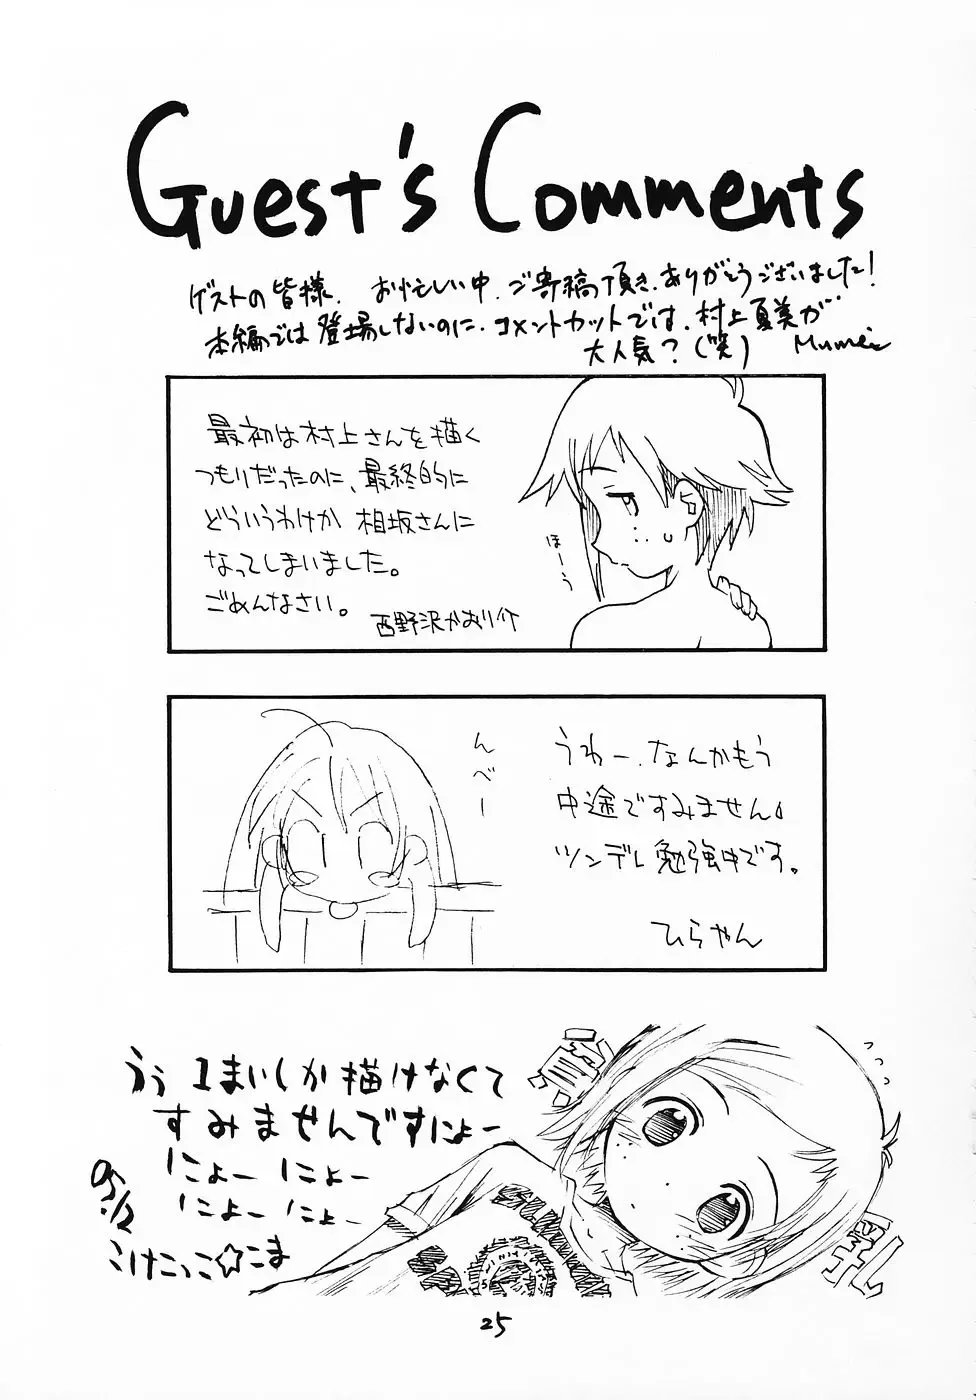 Guest's Comments
ゲストの皆様、お忙しい中、ご寄稿頂き、ありがとうございました!
本編では登場しないのに、コメントカットでは、村上夏美が…
大人気?(笑) Mumei
最初は村上さんを描く
つもりだったのに、最終的に
どういうわけか相坂さんに
なってしまいました。
ごめんなさい。
西野沢かおり介
ほーう
んべー
うわー、なんかもう
中途ですみません。
ツンデレ勉強中です。
ひらやん
うぅ 1まいしか描けなくて
すみませんですにょー
にょー にょー
にょー にょー
05.12
こけこっこ☆こま
貧
乳
25